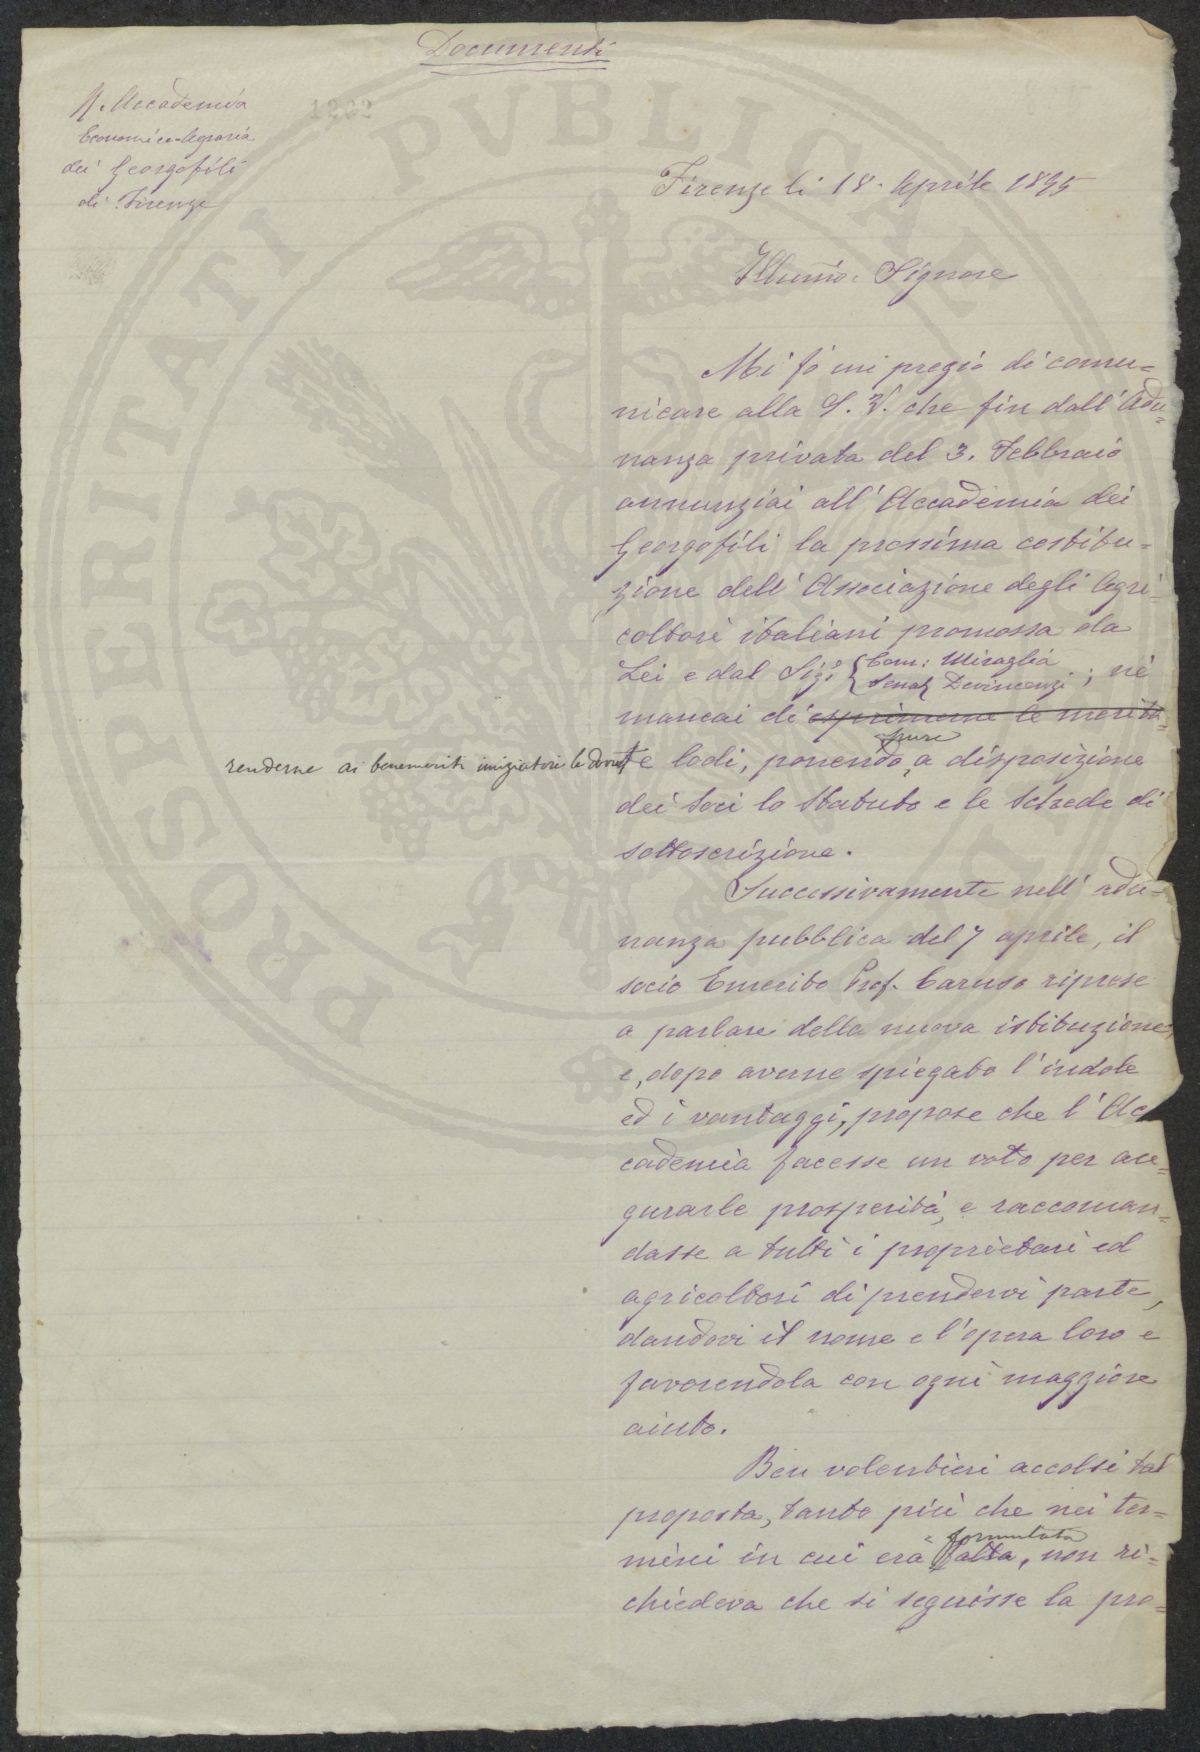 Documenti
R. Accademia
Economico-Agraria
dei Georgofili
di Firenze
1202
Firenze li 18. Aprile 1895
Illumo. Signore
Mi fò un pregio di comu=
nicare alla S. V. che fin dall' Adu=
nanza privata del 3. Febbraio
annunziai all' Accademia dei
Georgofili la prossima costitu=
zione dell' Associazione degli Agri=
coltori italiani promossa da
Lei e dal Sigi Com: Miraglia
Senat Devincenzi ; nè
mancai di esprimerne le merita=
renderne ai benemeriti iniziatori le dovute lodi, ponendo pure a disposizione
dei Soci lo Statuto e le Schede di
sottoscrizione.
Successivamente nell' adu=
nanza pubblica del 7 aprile, il
socio Emerito Prof. Caruso riprese
a parlare della nuova istituzione,
e, dopo averne spiegato l' indole
ed i vantaggi, propose che l' Ac
cademia facesse un voto per au=
gurarle prosperità, e raccoman=
dasse a tutti i proprietari ed
agricoltori di prendervi parte,
dandovi il nome e l' opera loro e
favorendola con ogni maggiore
aiuto.
Ben volentieri accolsi tal
proposta, tanto più che nei ter=
formulata
mini in cui era fatta, non ri=
chiedeva che si seguisse la pro=
PROSPERITATI PVBLICAE